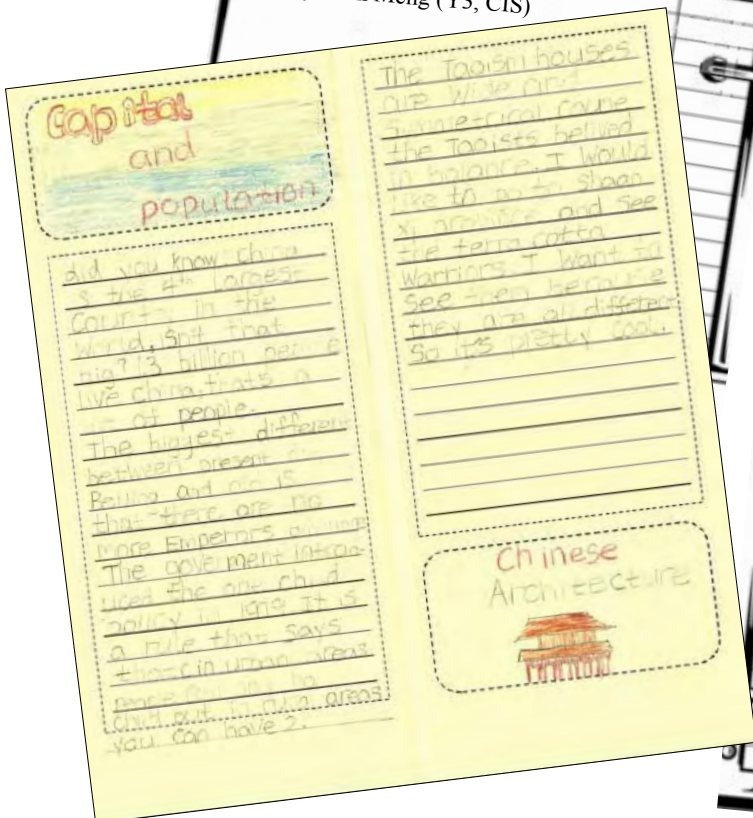 Meng (Y3, CIS)
Capital
and
population
did you know China
s the 4th larges-
Country in the
World, isnt that
big? 1.3 billion people
live china, thats a
of people.
The biggest different
between present
Beijing and is
that there are no
more Emperors
The goverment introd-
uced the one child
policy in It is
a rule that says
that in urban areas
child but in areas
you can have 2.
The Taoism houses
are Wide and
Symmetrical
the Taoists belived
in balance. I Would
like to go to Shaan
xi province and See
the terra cotta
Warriors I Want to
See them
they are all different
So it's pretty cool.
Chinese
Architecture